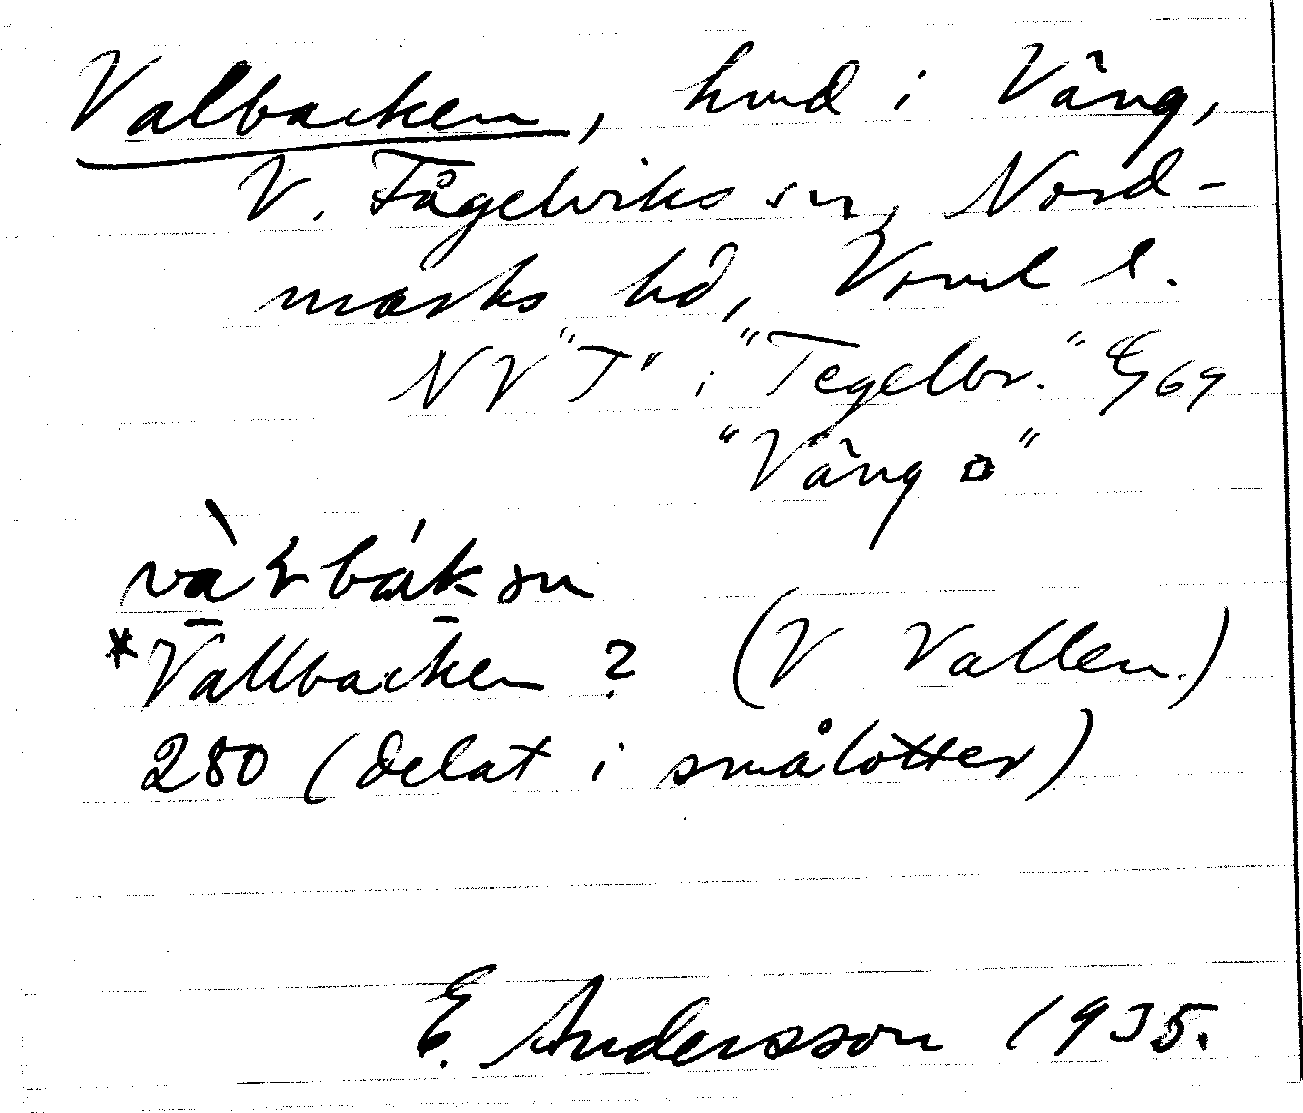 Valbacken, hmd i Vång,
V. Fågelviks sn, Nord-
marks hd, Vrml l.
NV "T" i "Tegelbr." E/69
"Vång □"
*Vallbacken ? (V Vallen.)
280 (delat i smålotter)
E. Andersson 1935.